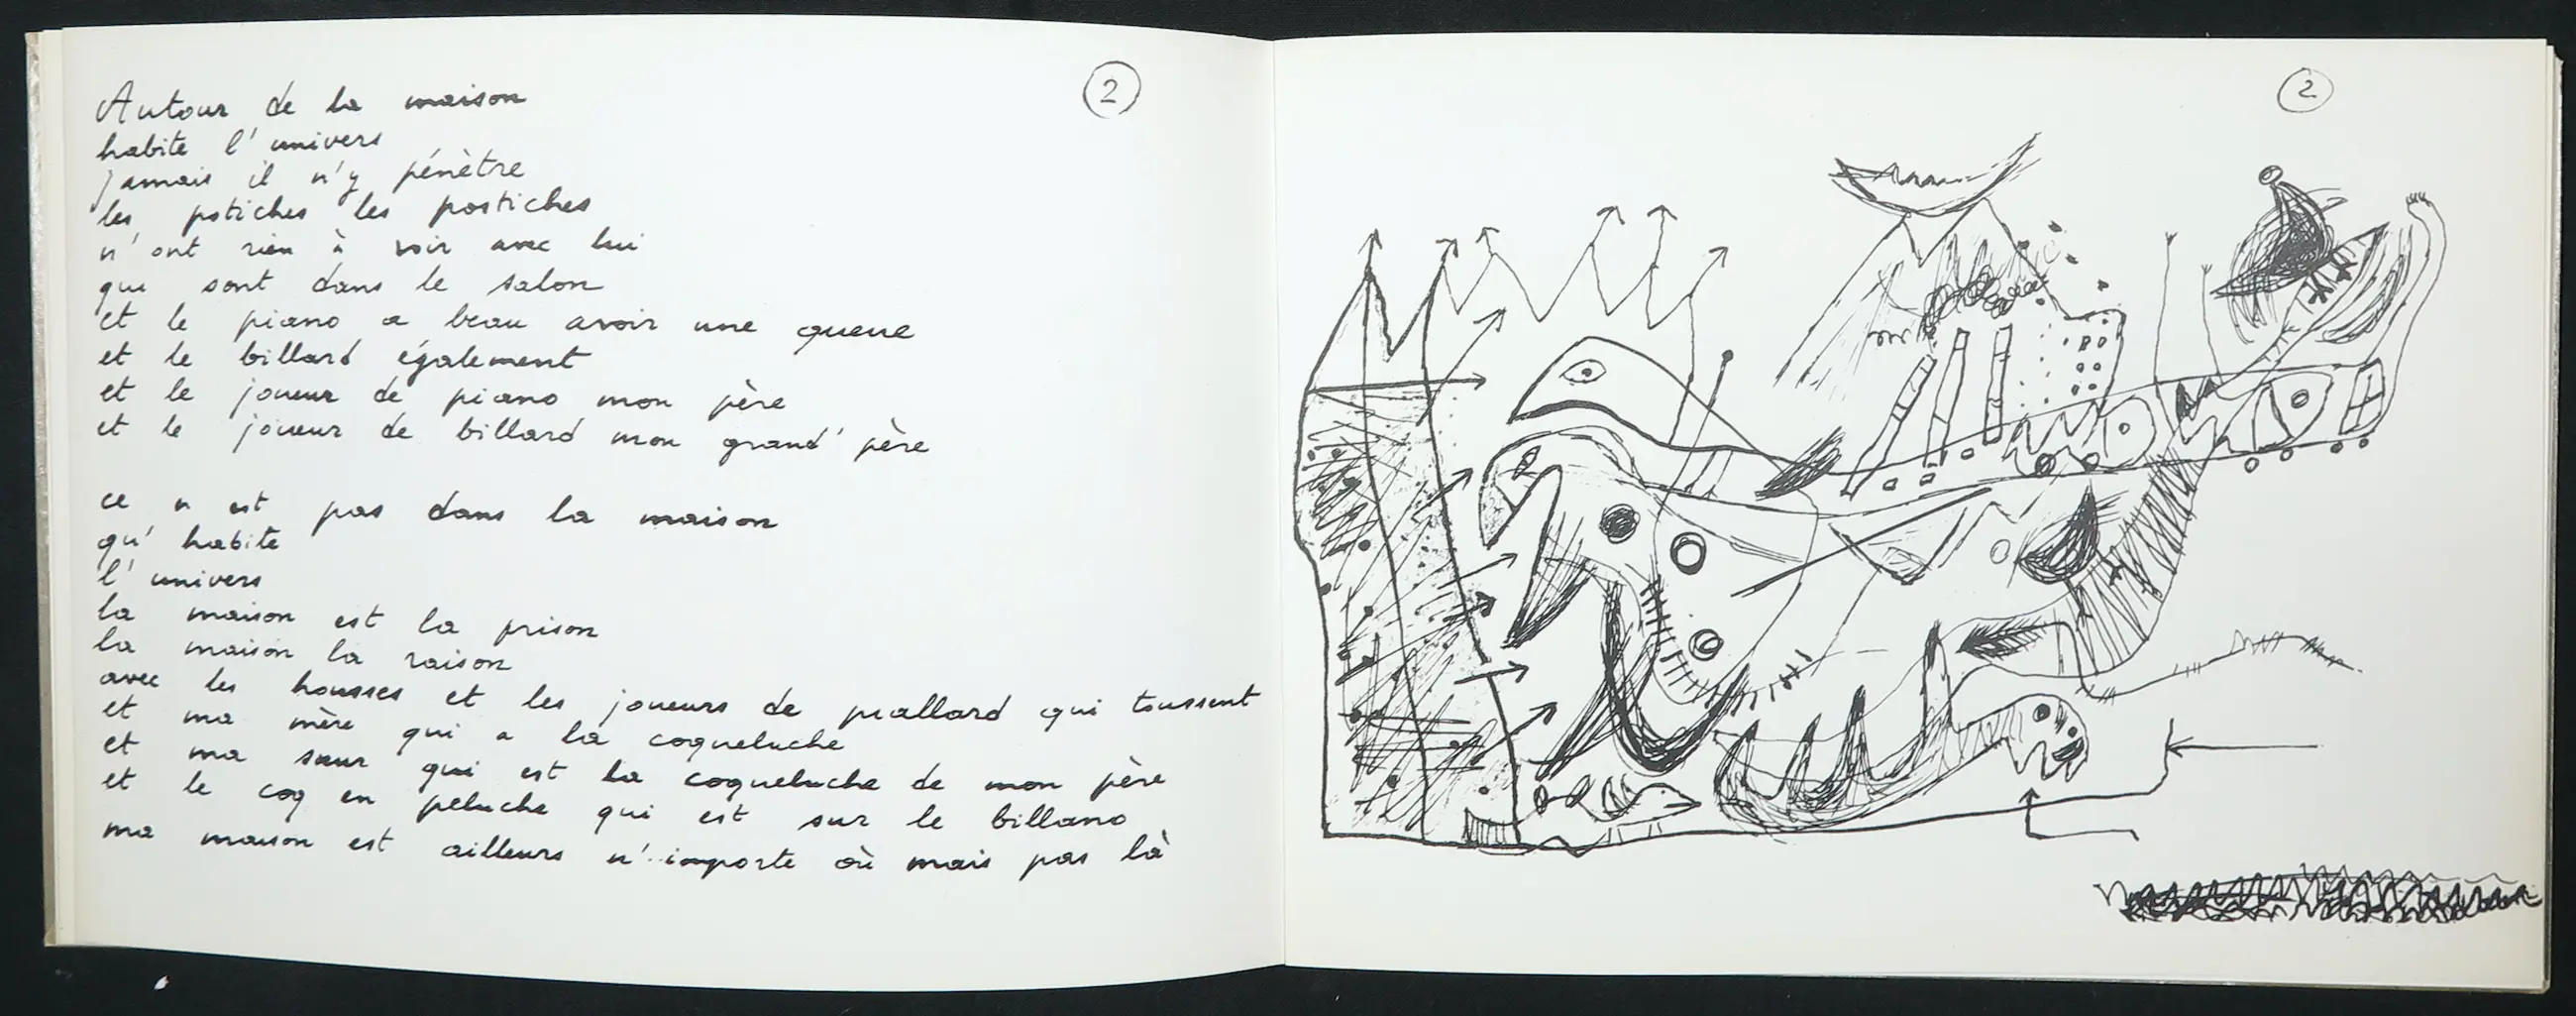 2
Autour de la maison
habite l'univers
jamais il n'y pénètre
les pstiches les postiches
n'ont rien à voir avec lui
qui sont dans le salon
et le piano a beau avoir une queue
et le billard également
et le joueur de piano mon père
et le joueur de billard mon grand'père
ce n est pas dans la maison
qu'habite
l'univers
la maison est la prison
la maison la raison
avec les housses et les joueurs de piallard qui toussent
et ma mère qui a la coqueluche
et ma sœur qui est la coqueluche de mon père
et le coq en peluche qui est sur le billano
ma maison est ailleurs n'importe où mais pas là
2